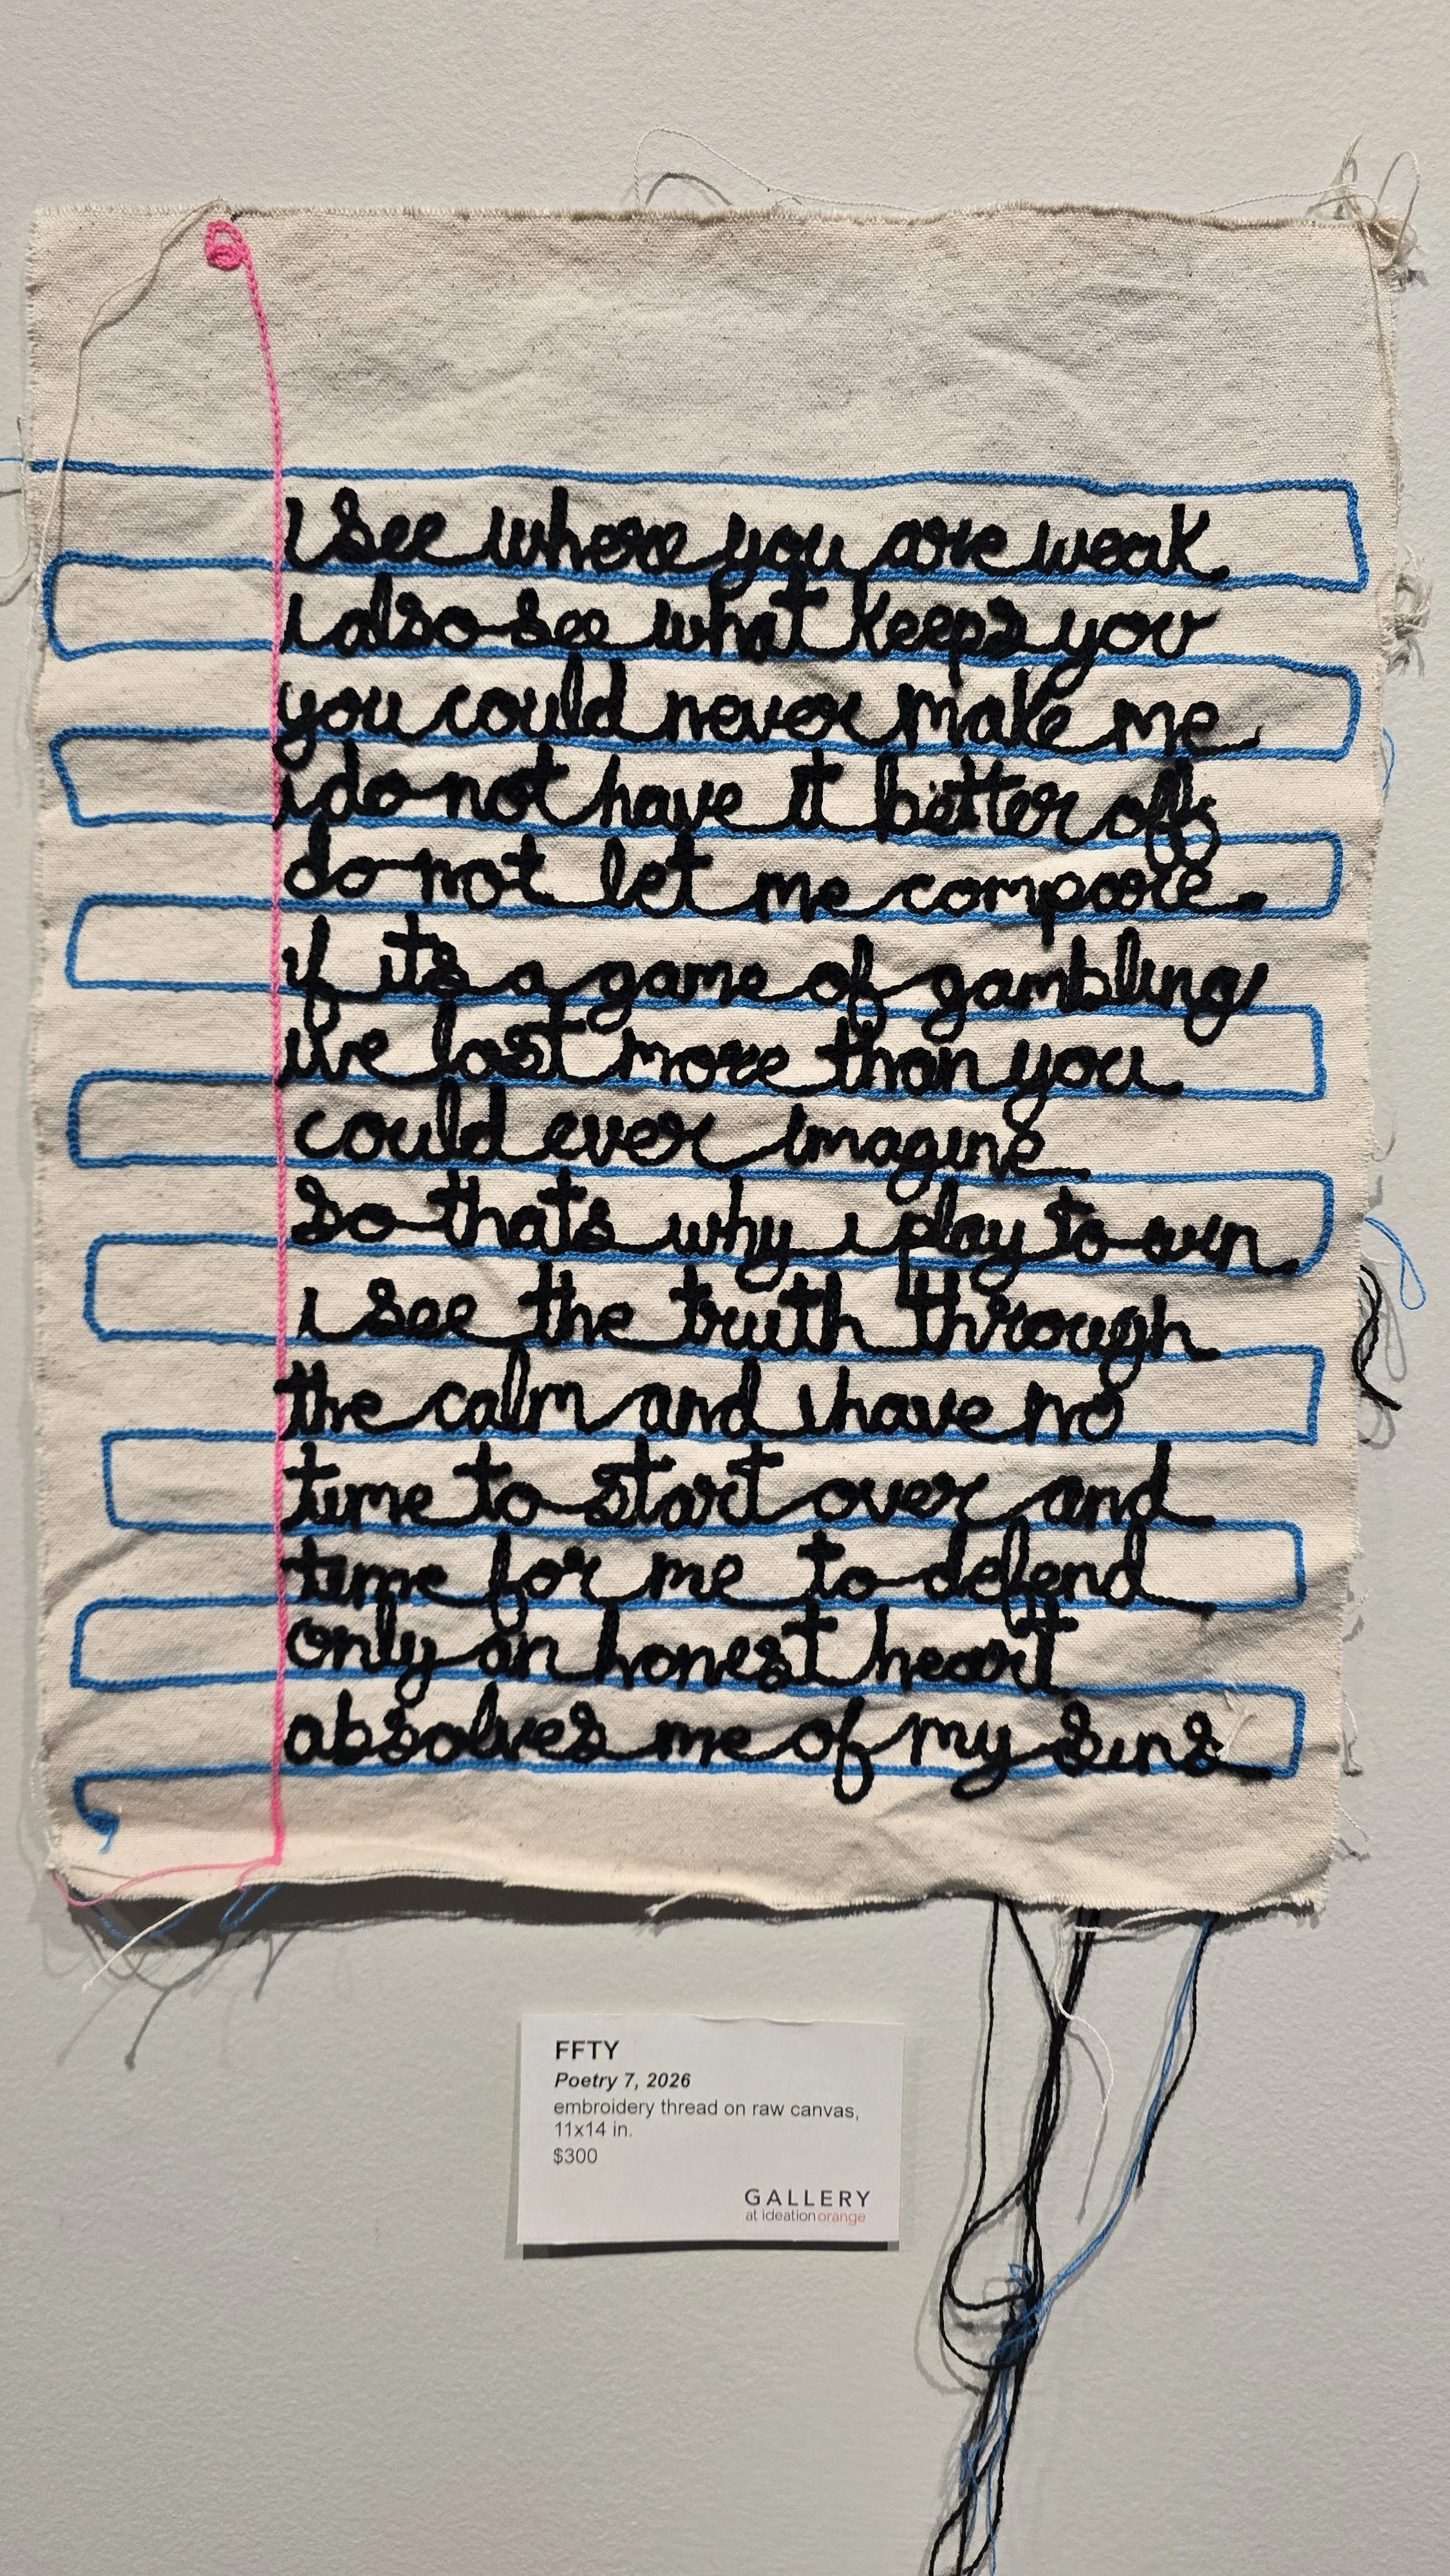 i see where you are weak
i also see what keeps you
you could never make me
i do not have it better off
do not let me compare
if its a game of gambling
ive lost more than you
could ever imagine
so thats why i play to win
i see the truth through
the calm and i have no
time to start over and
time for me to defend
only an honest heart
absolves me of my sins
FFTY
Poetry 7, 2026
embroidery thread on raw canvas,
11x14 in.
$300
GALLERY
at ideationorange